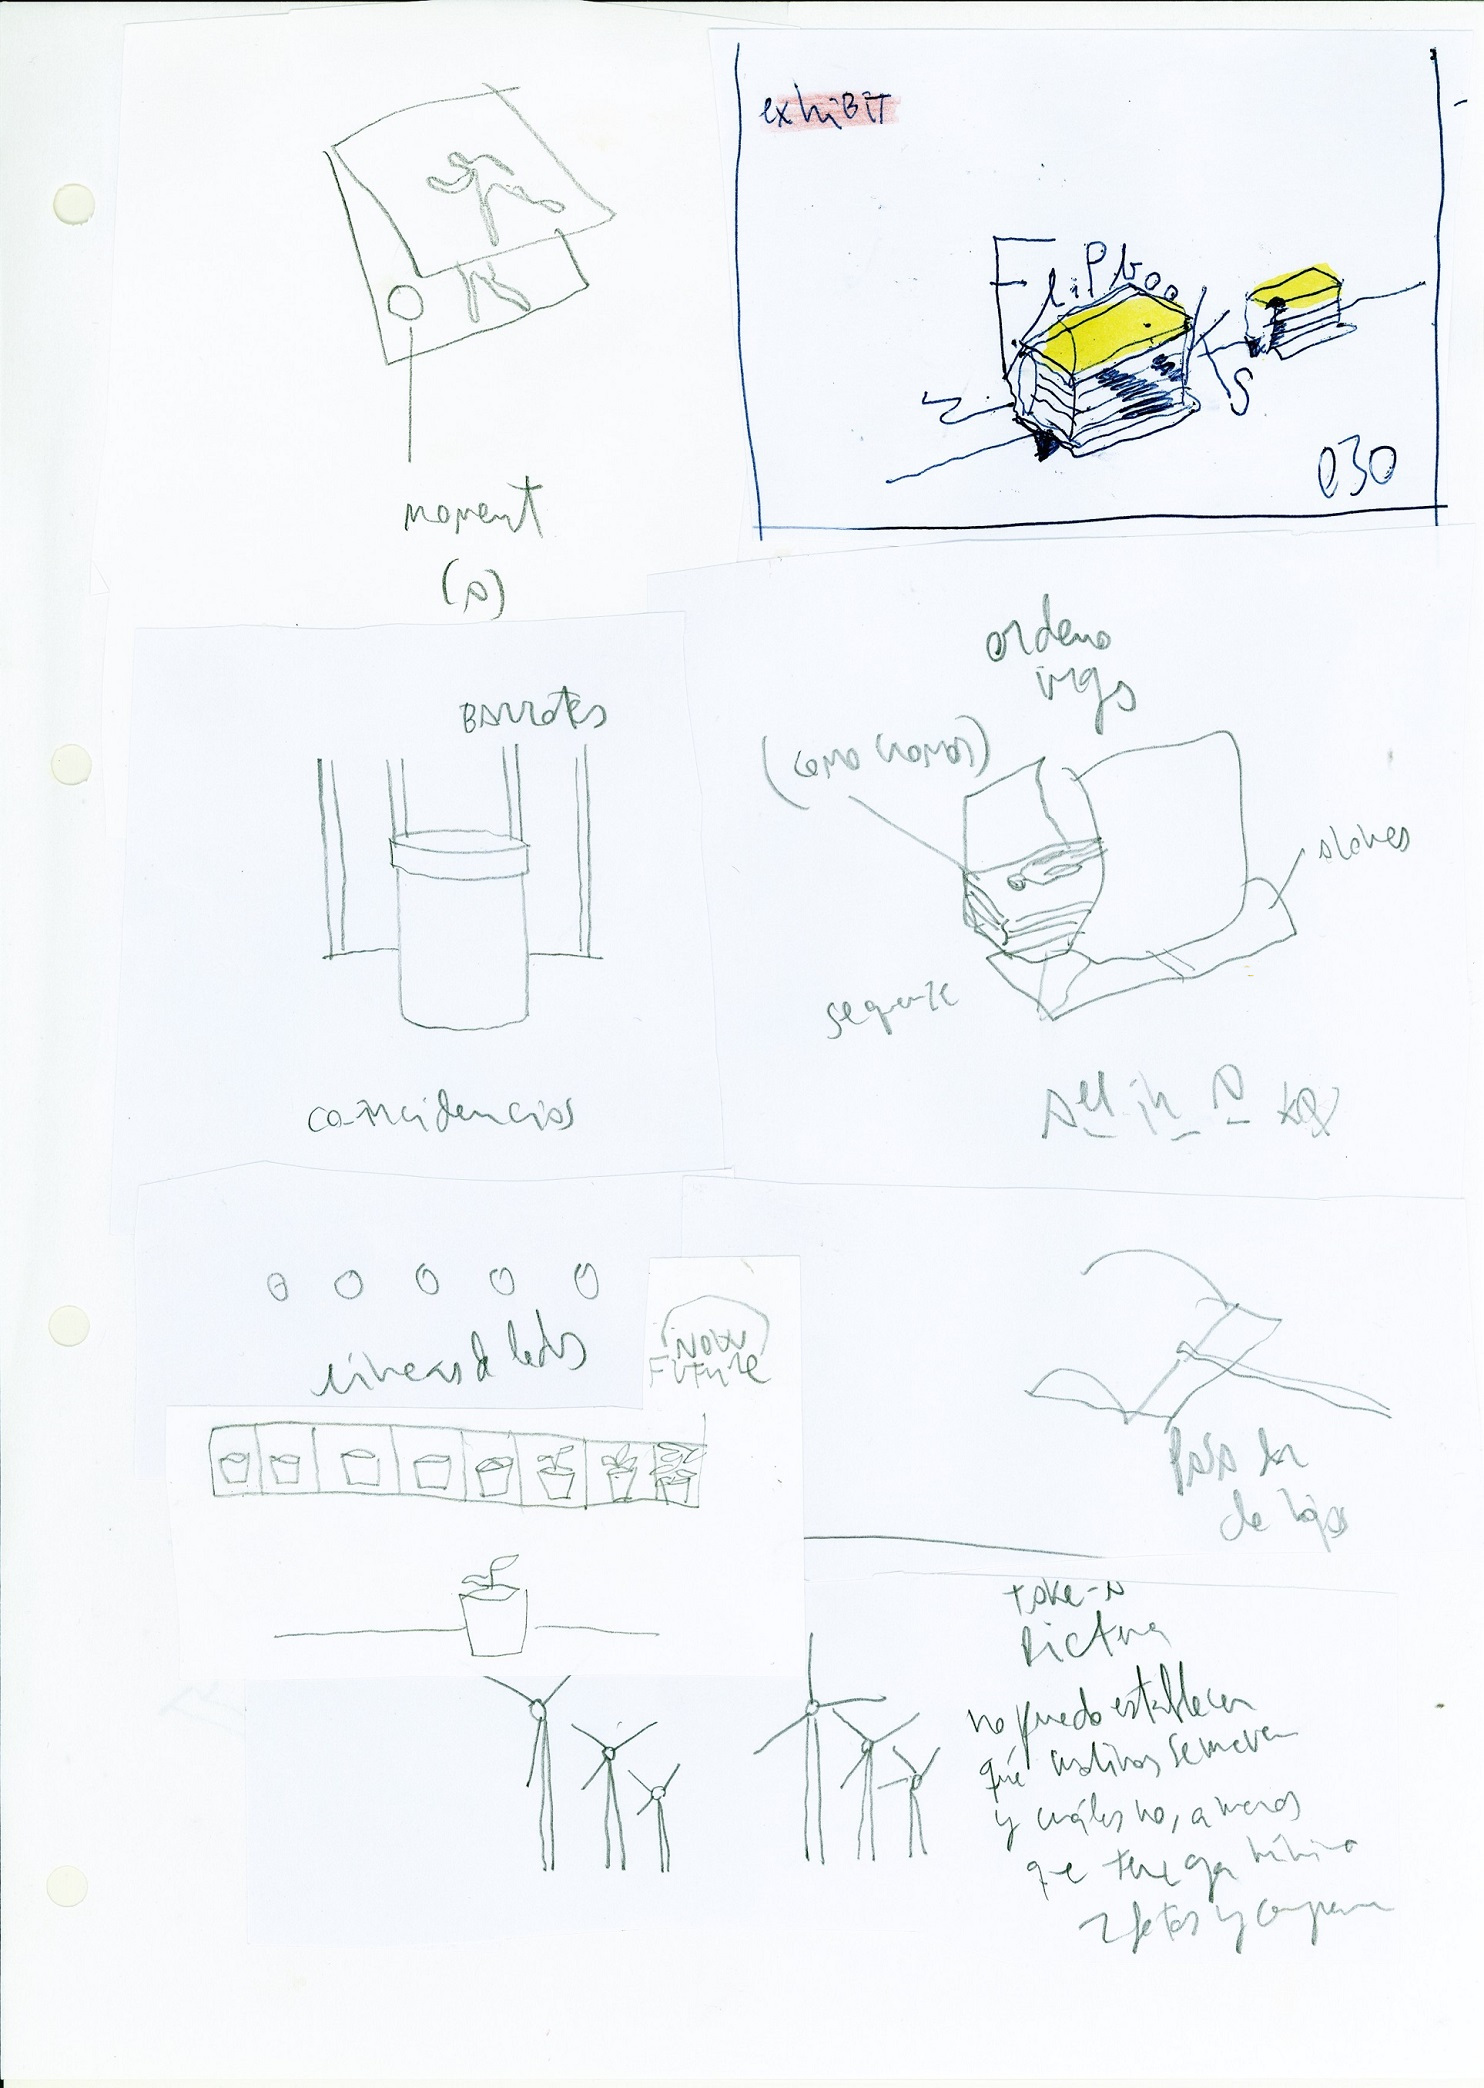 exhiBiT
FlipbooKs
030
moment
(a)
BARROTES
coincidencias
ordeno
imgs
(como cromos)
slones
sequenze
All in A box
líneas de leds
NOW
FUTURE
pasador
de hojas
take-a
picture
no puedo establecer
qué molinos se mueven
y cuáles no, a menos
que tenga mínimo
2 fotos y compare